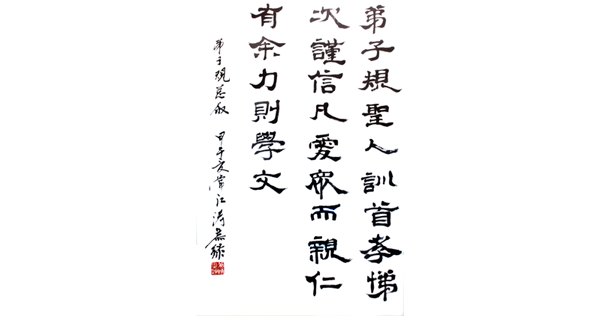 弟子規聖人訓首孝悌
次謹信凡愛眾而親仁
有余力則學文
弟子規总叙 甲午夏常江涛恭録